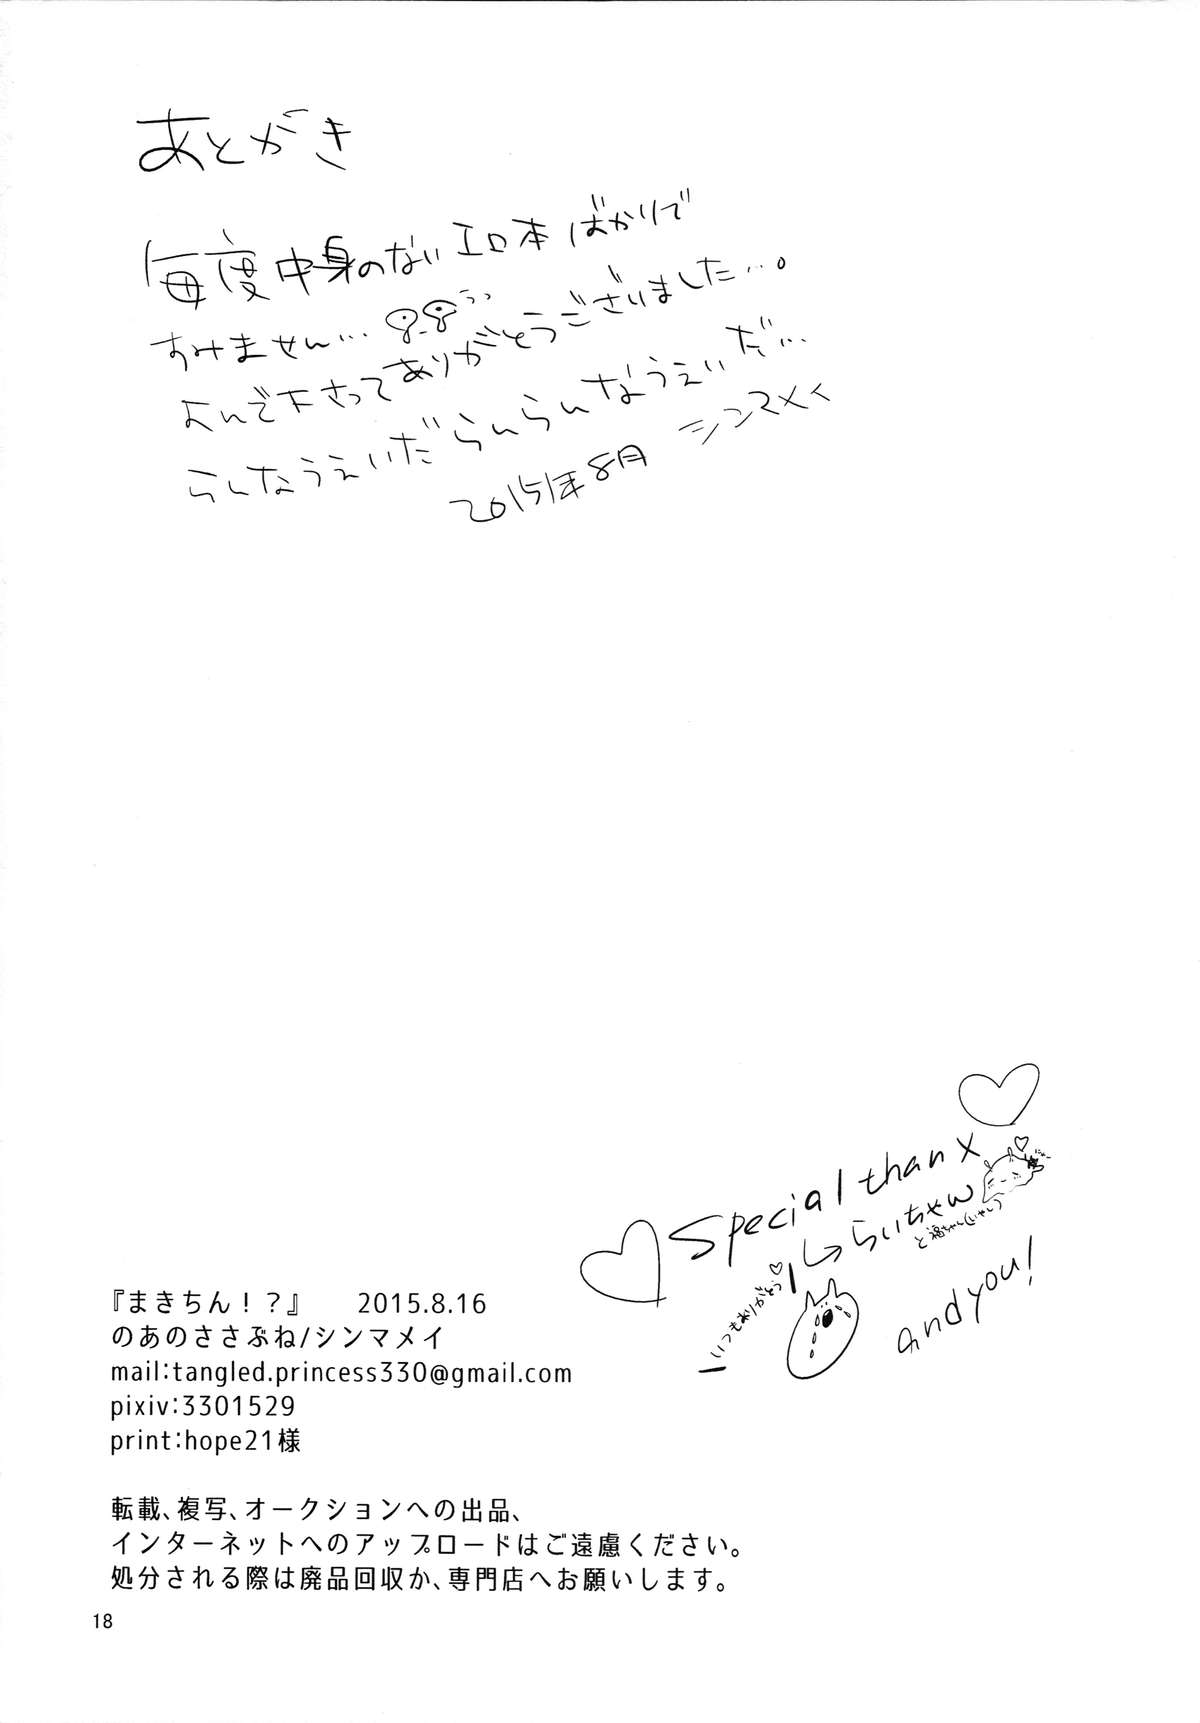 あとがき
毎度中身のないエロ本ばかりで
すみません… うっ
よんで下さってありがとうございました…。
らんなうぇいだらんらんなうぇいだ…
2015年8月 シンマメイ
Special thanx
らいちゃん
と福ちゃん(いやし)
いつもありがとう
and you!
『まきちん！？』 2015.8.16
のあのささぶね/シンマメイ
mail:tangled.princess330@gmail.com
pixiv:3301529
print:hope21様
転載、複写、オークションへの出品、
インターネットへのアップロードはご遠慮ください。
処分される際は廃品回収か、専門店へお願いします。
18